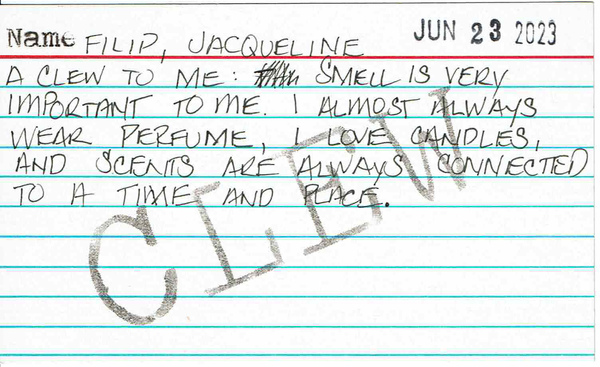 Name FILIP, JACQUELINE JUN 23 2023
A CLEW TO ME: SMELL IS VERY
IMPORTANT TO ME. I ALMOST ALWAYS
WEAR PERFUME, I LOVE CANDLES,
AND SCENTS ARE ALWAYS CONNECTED
TO A TIME AND PLACE.
CLEW